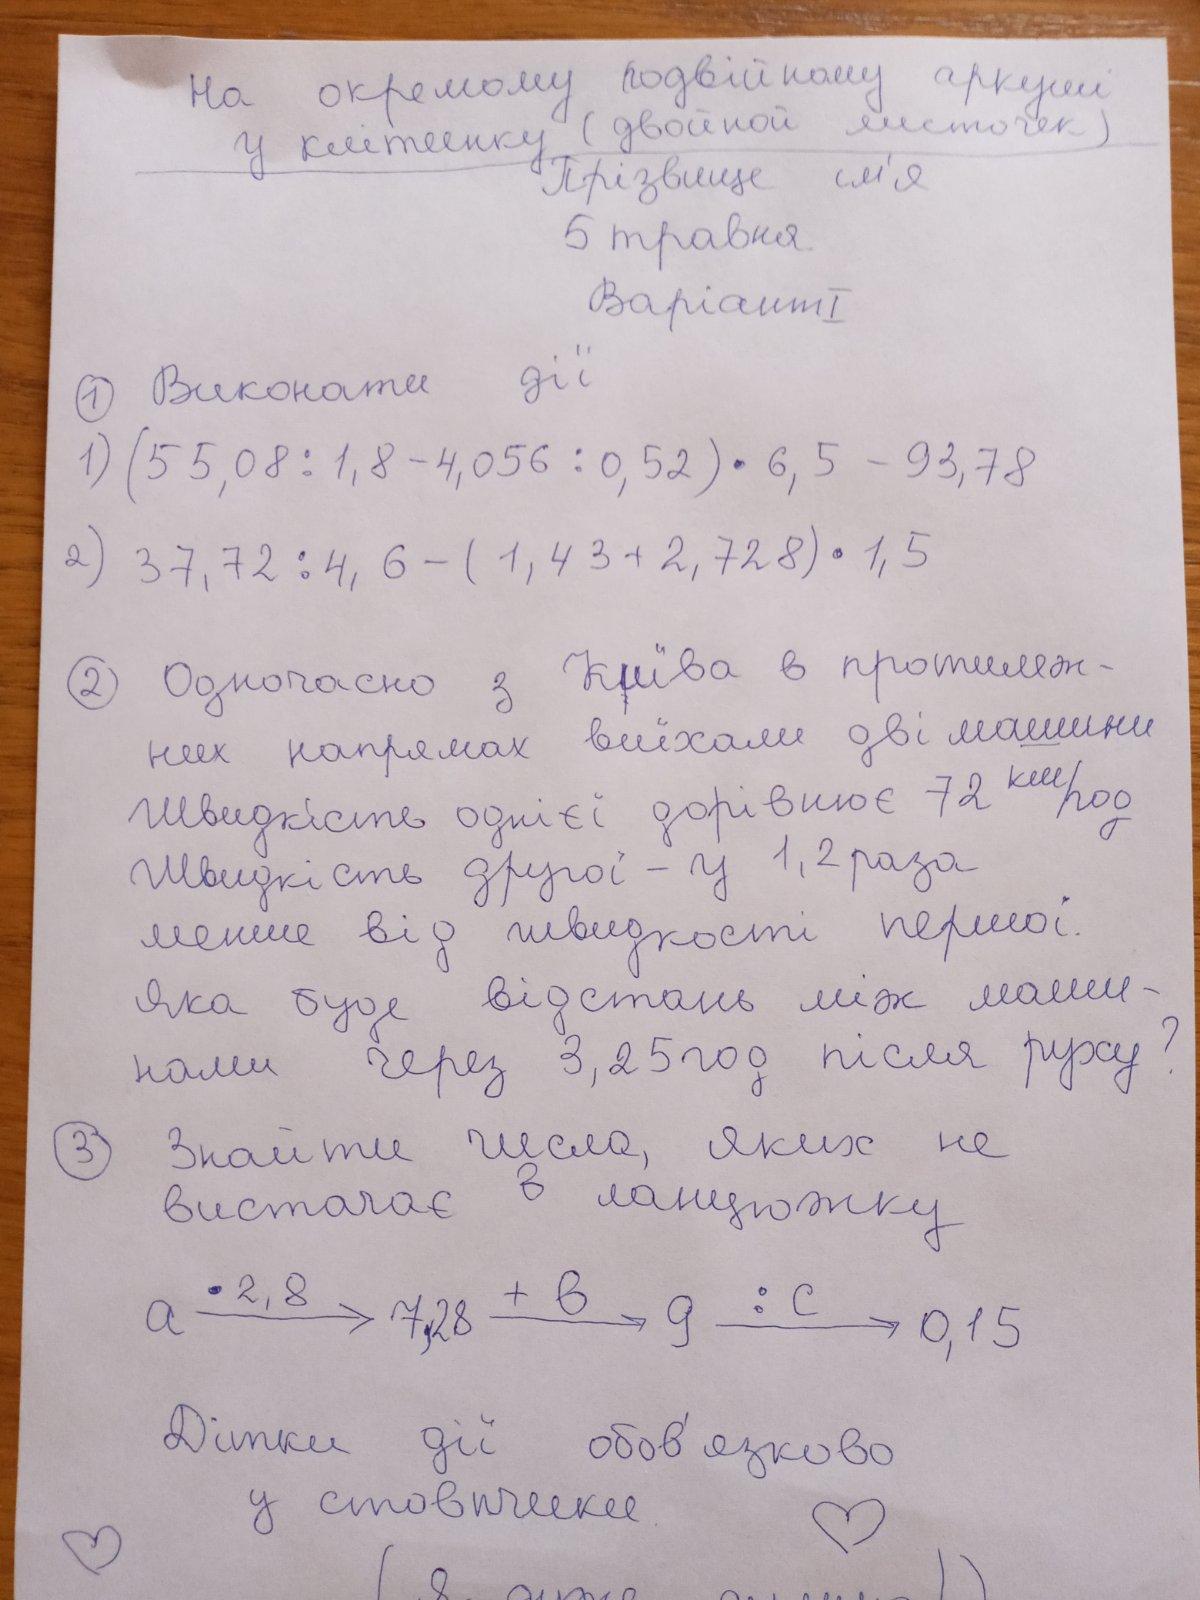 На окремому подвійному аркуші
у клітинку (двойной листочек)
Прізвище ім'я
5 травня.
Варіант I
① Виконати дії
1) (55,08 : 1,8 - 4,056 : 0,52) • 6,5 - 93,78
2) 37,72 : 4,6 - (1,43 + 2,728) • 1,5
② Одночасно з Київа в протилеж-
них напрямах виїхали дві машини
Швидкість однієї дорівнює 72 км/год
Швидкість другої - у 1,2 раза
менше від швидкості першої.
Яка буде відстань між маши-
нами через 3,25 год після руху?
③ Знайти числа, яких не
вистачає в ланцюжку
a •2,8 → 7,28 + b → 9 : c → 0,15
Дітки дії обов'язково
у стовпчики.